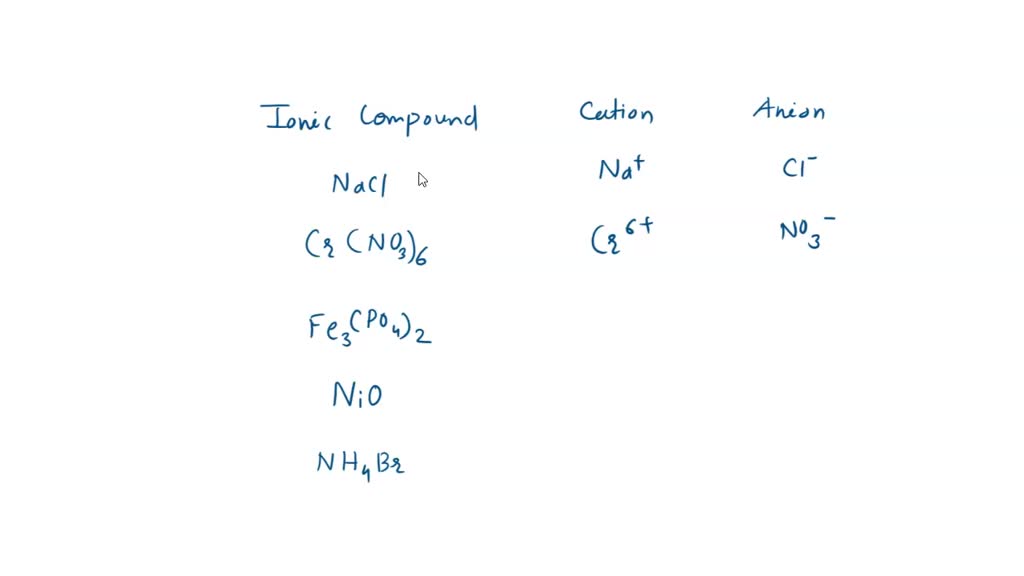 Ionic Compound Cation Anion
NaCl Na⁺ Cl⁻
Cr(NO₃)₆ Cr⁶⁺ NO₃⁻
Fe₃(PO₄)₂
NiO
NH₄Br